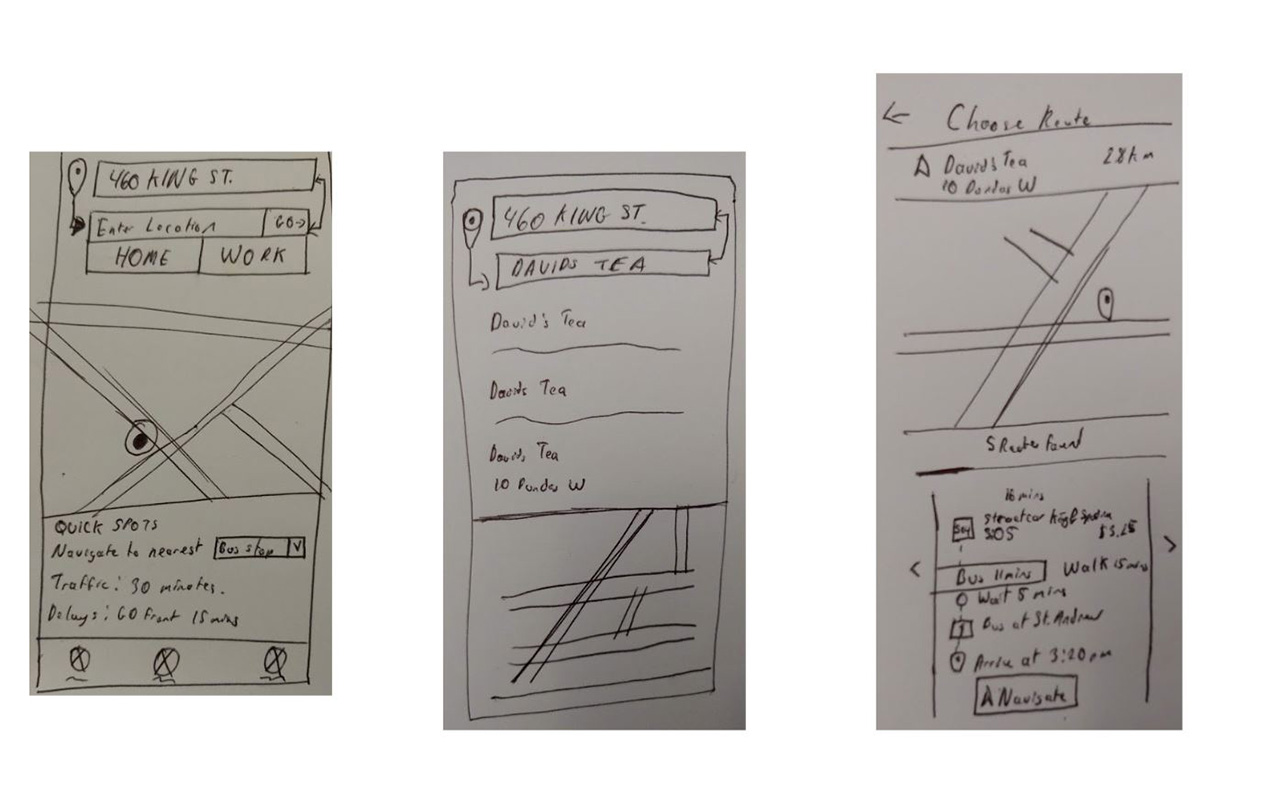 460 KING ST.
Enter Location GO→
HOME WORK
QUICK SPOTS
Navigate to nearest Bus stop
Traffic: 30 minutes.
Delays: GO Front 15 mins
460 KING ST.
DAVIDS TEA
David's Tea
Davids Tea
Davids Tea
10 Dundas W
← Choose Route
David's Tea 2.8km
10 Dundas W
5 Routes Found
16 mins
Streetcar
505
Bus 11mins Walk 15 mins
< >
Wait 5 mins
Bus at St. Andrew
Arrive at 3:20pm
Navigate